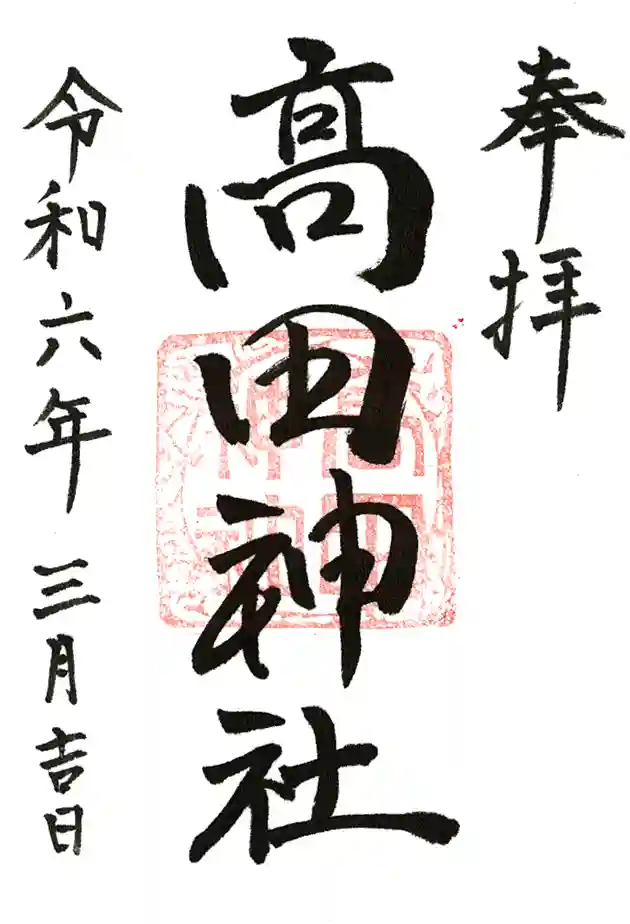 奉拝
高田神社
令和六年 三月吉日